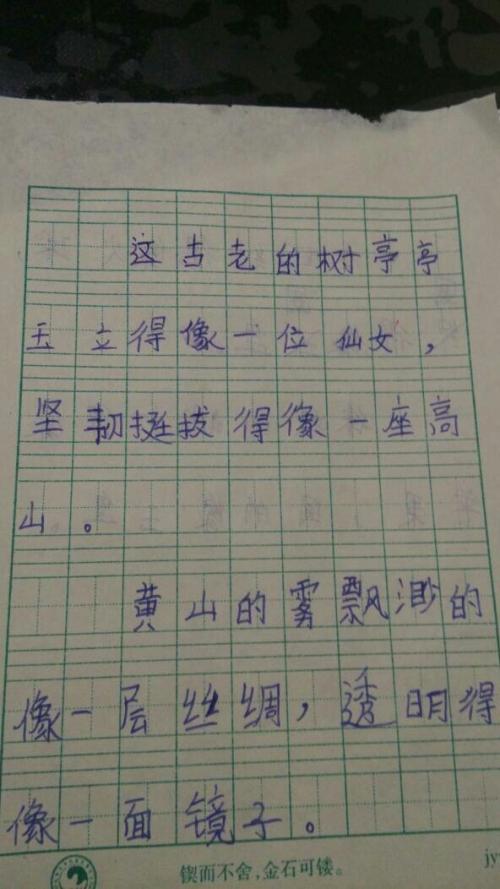 这古老的树亭亭
玉立得像一位仙女，
坚韧挺拔得像一座高
山。
黄山的雾飘渺的
像一层丝绸，透明得
像一面镜子。
锲而不舍，金石可镂。
jy